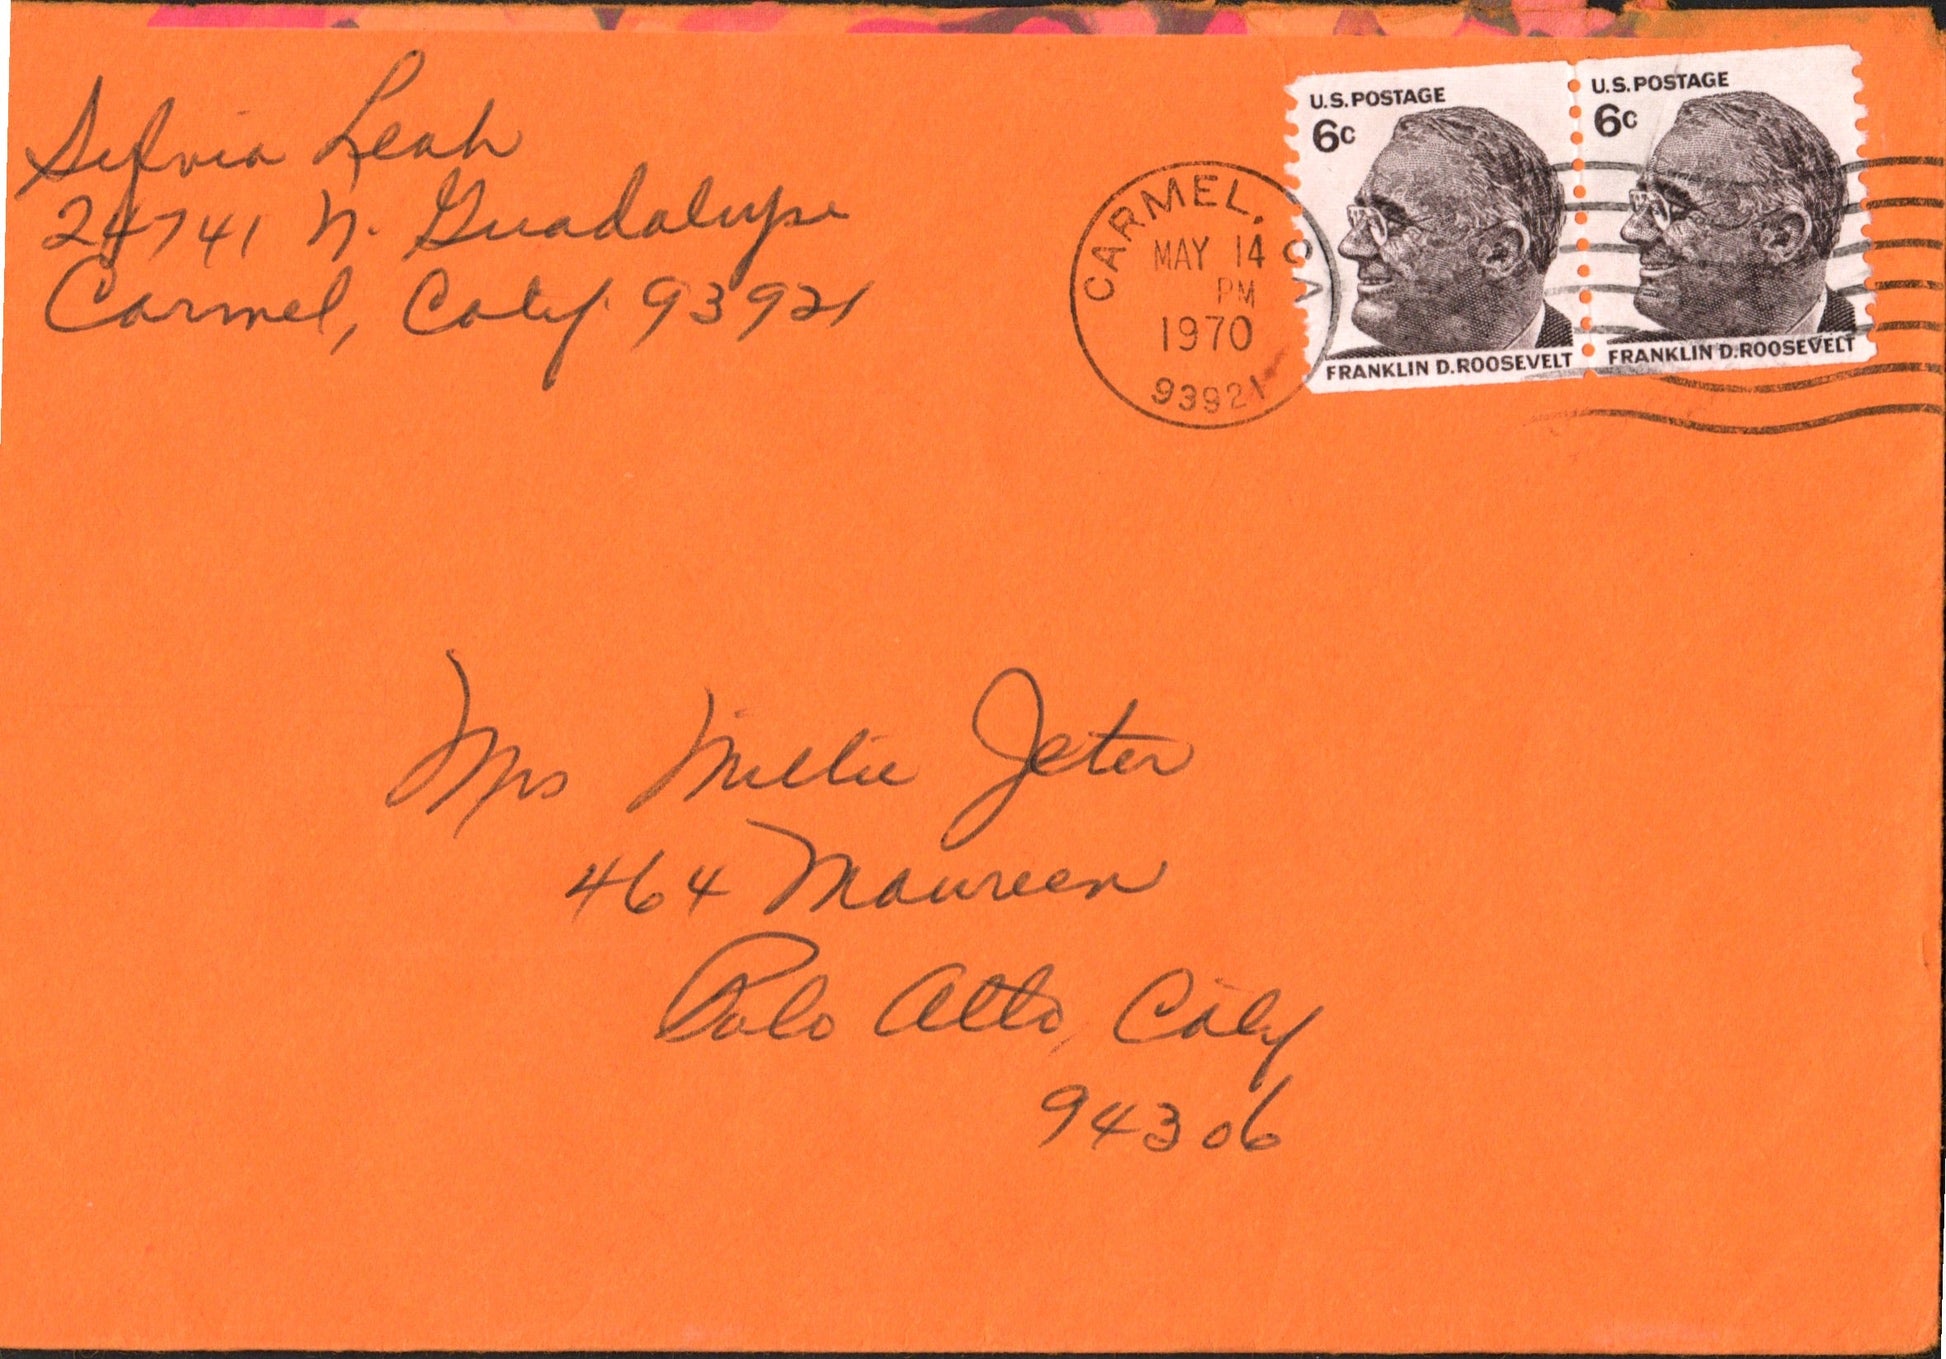 Silvia Leah
24741 N. Guadalupe
Carmel, Calif. 93921
U.S. POSTAGE
6c
FRANKLIN D. ROOSEVELT
U.S. POSTAGE
6c
FRANKLIN D. ROOSEVELT
CARMEL, CA
MAY 14
PM
1970
93921
Mrs Millie Jeter
464 Maureen
Palo Alto, Calif
94306